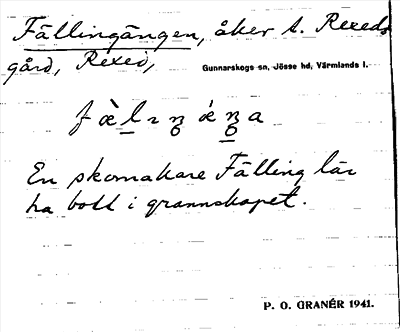 Fällingängen, åker t. Rexeds
gård, Rexed,
Gunnarskogs sn, Jösse hd, Värmlands l.
En skomakare Fälling lär
ha bott i grannskapet.
P. O. GRANÉR 1941.